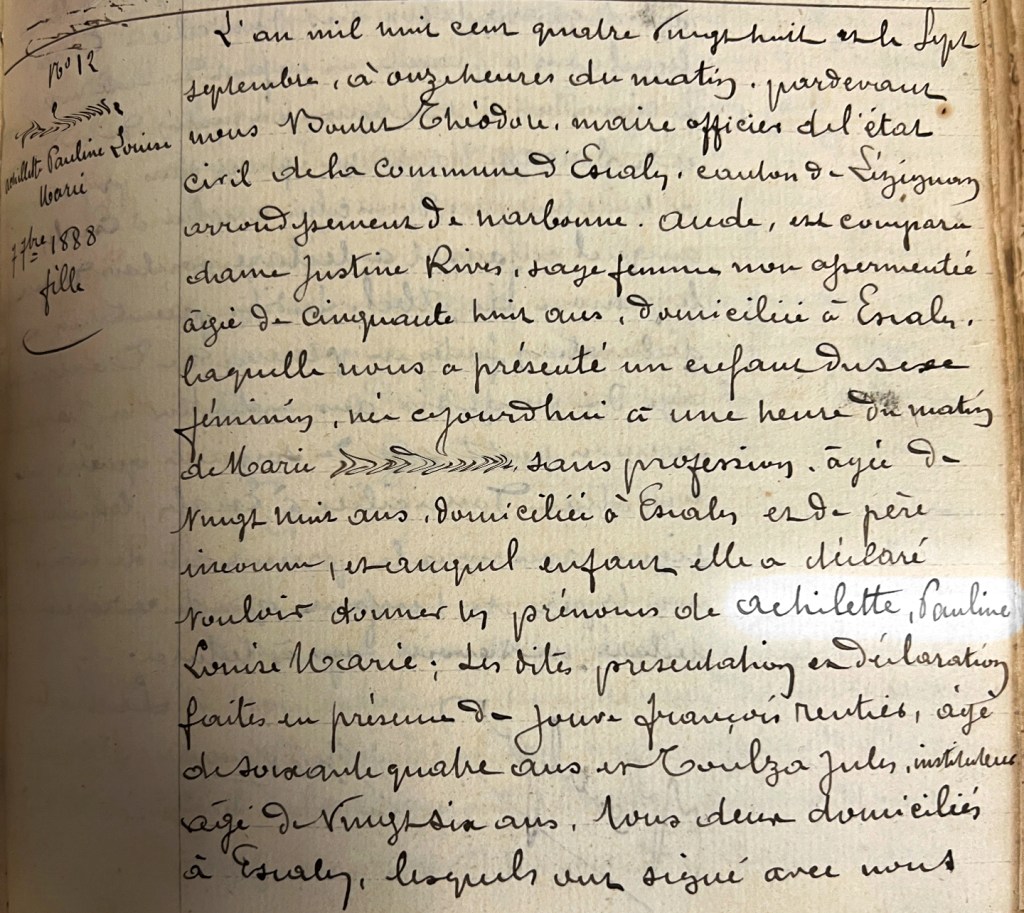 N° 12
Achillette Pauline Louise
Marie
7 7bre 1888
fille
L'an mil huit cent quatre Vingt huit et le Sept
septembre, à onze heures du matin. pardevant
nous Boulet Théodore, maire officier de l'état
civil de la commune d'Escales. canton de Lézignan
arrondissement de Narbonne. Aude, est comparu
dame Justine Rives, sage femme non assermentée
âgée de Cinquante huit ans, domiciliée à Escales.
laquelle nous a présenté un enfant du sexe
féminin, née cejourdhui à une heure du matin
de Marie sans profession. âgée de
Vingt huit ans, domiciliée à Escales et de père
inconnu, et auquel enfant elle a déclaré
Vouloir donner les prénoms de achilette, Pauline
Louise Marie; Les dites presentation et déclaration
faites en présence de Jouve françois rentier, âgé
de soixante quatre ans et Toulza Jules, instituteur
âgé de Vingt six ans, tous deux domiciliés
à Escales, lesquels ont signé avec nous